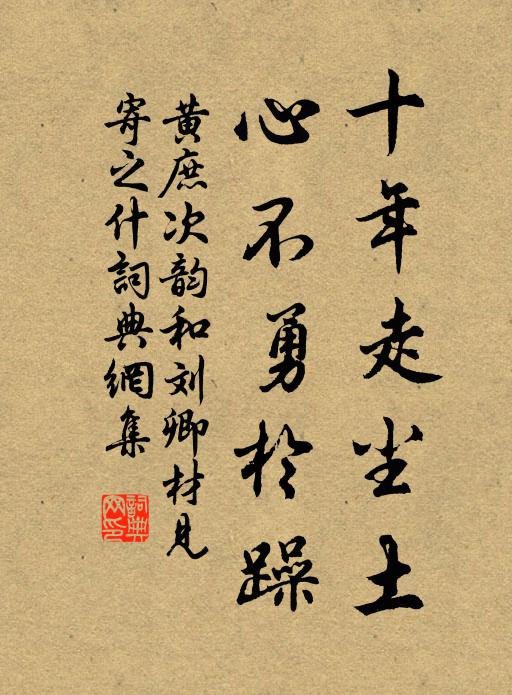 十年走尘土
心不勇於躁
黄庶次韵和刘卿材见
寄之什詞典網集
詞典網印